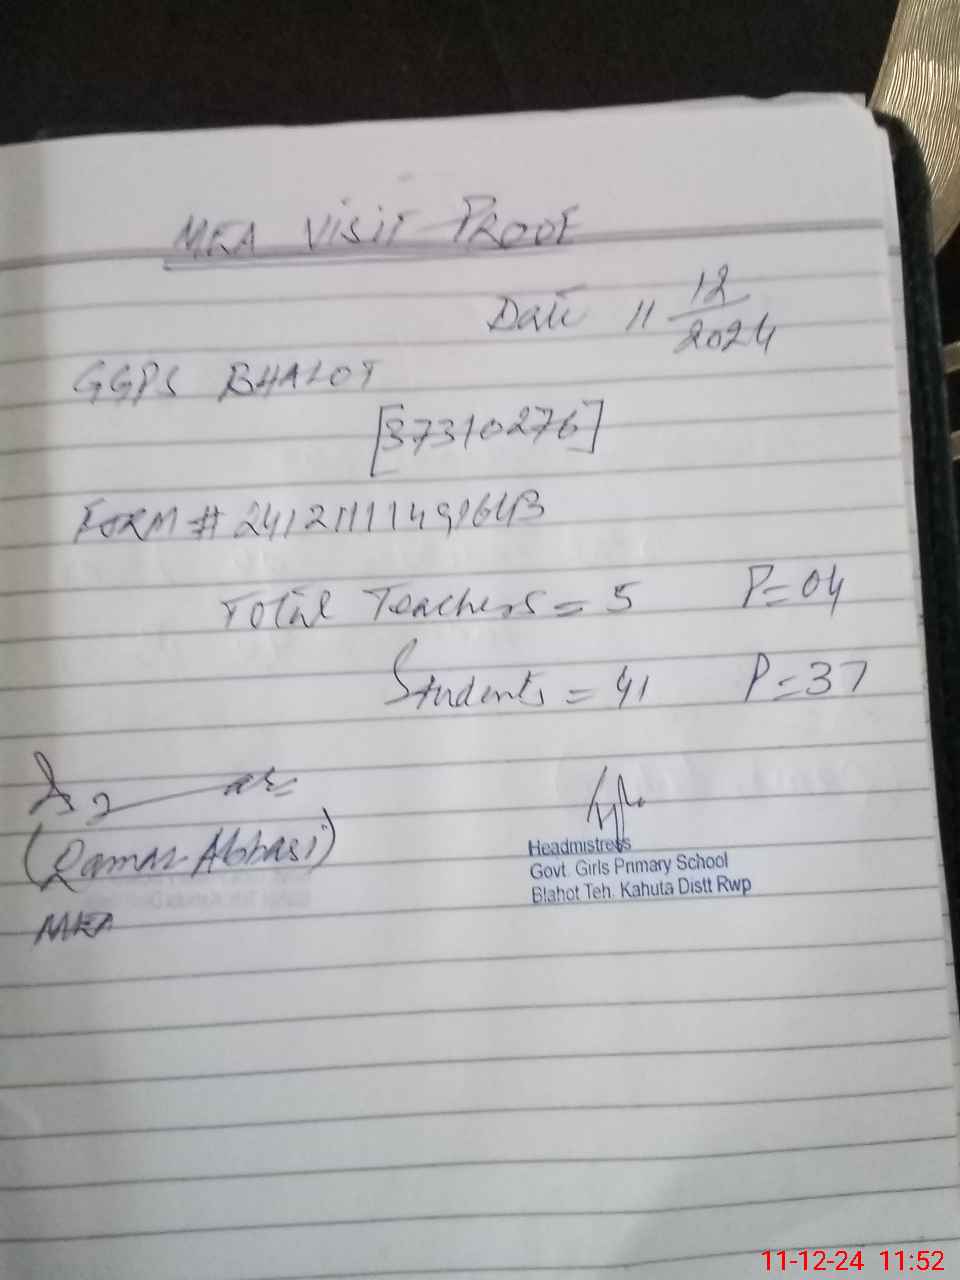 MEA VISIT PROOF
Date 11 12/2024
GGPS BHALOT
[37310276]
FORM # 241211111491643
Total Teachers = 5 P=04
Students = 41 P=37
(Qamar Abbasi)
MEA
Headmistress
Govt. Girls Primary School
Blahot Teh. Kahuta Distt Rwp
11-12-24 11:52